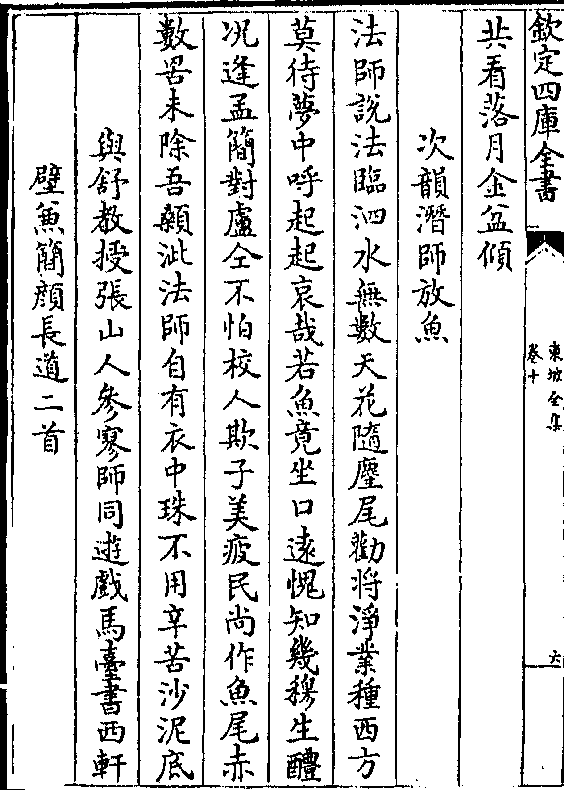 欽定四庫全書
東坡全集
卷十
六
共看落月金盆傾
次韻潛師放魚
法師說法臨泗水無數天花隨麈尾勸將淨業種西方
莫待夢中呼起起哀哉若魚竟坐口遠愧知幾穆生醴
况逢孟簡對盧仝不怕校人欺子美疲民尚作魚尾赤
數罟未除吾顙泚法師自有衣中珠不用辛苦沙泥底
與舒教授張山人參寥師同遊戲馬臺書西軒
壁兼簡顔長道二首